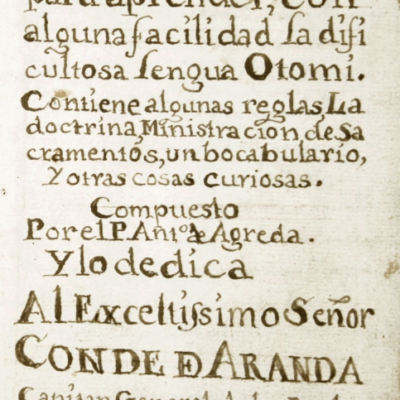 para aprender, con
alguna facilidad la difi
cultosa lengua Otomi.
Contiene algunas reglas, La
doctrina, Ministracion de Sa
cramentos, un bocabulario,
y otras cosas curiosas.
Compuesto
Por el P. Anto. de Agreda.
Y lo dedica
Al Exceltissimo Señor
CONDE DE ARANDA
Capitan General